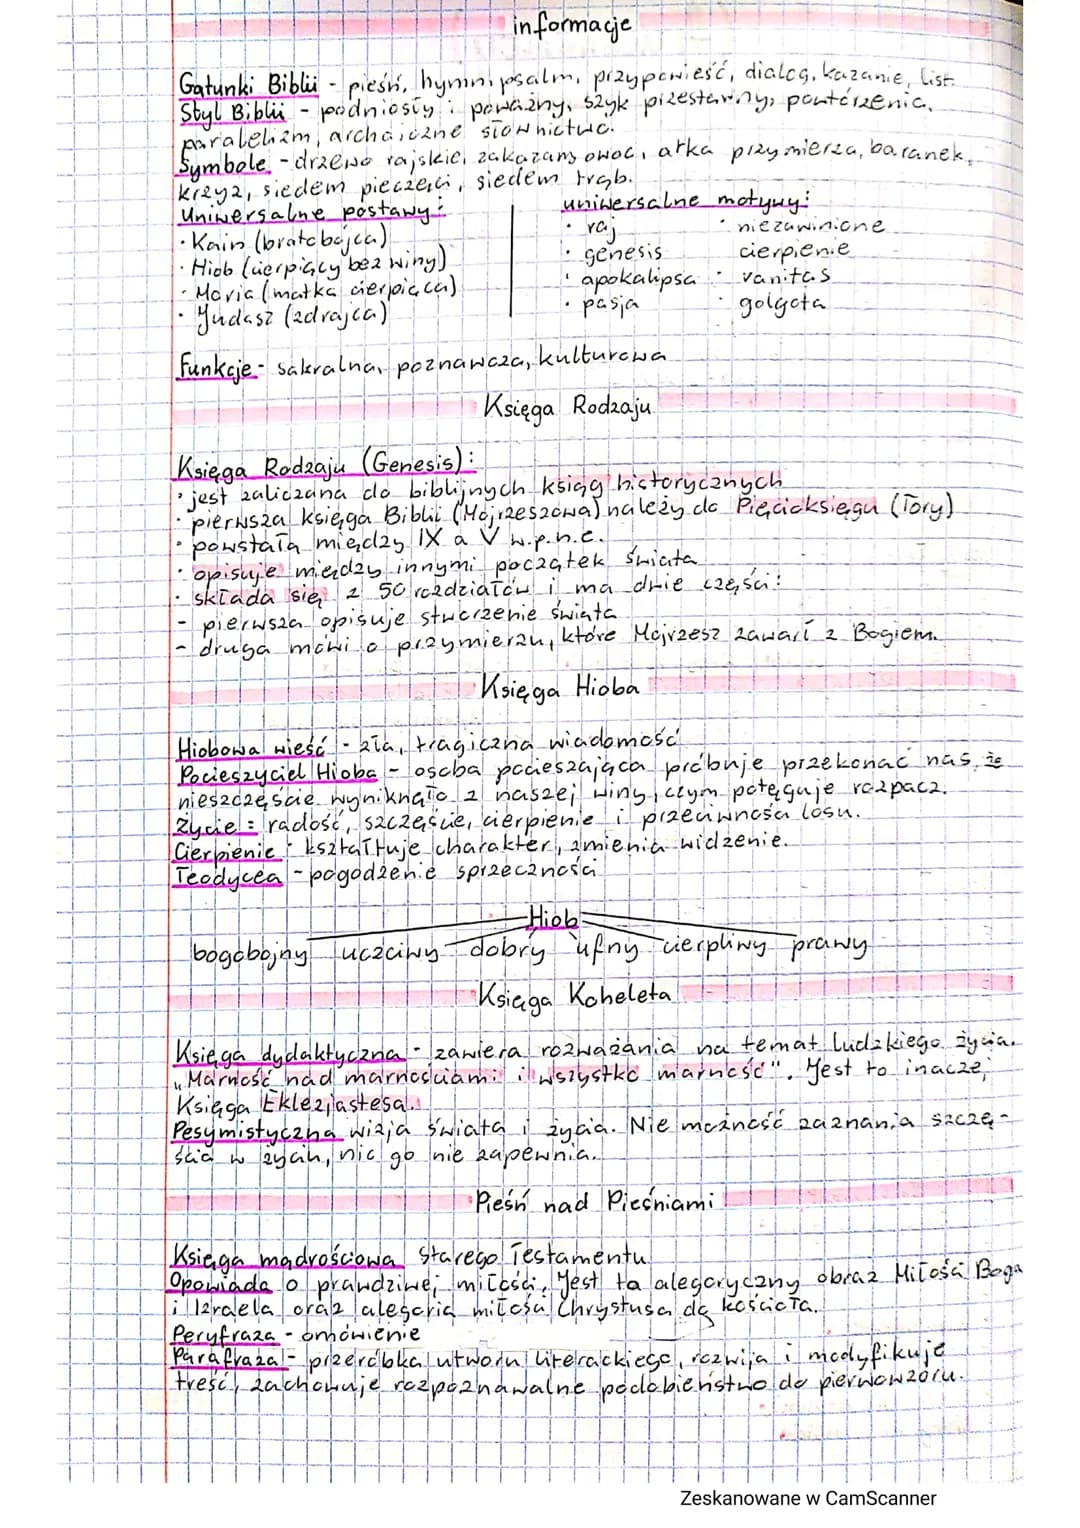 informacje
Gatunki Biblii - pieśń, hymn, psalm, przypowieść, dialog, kazanie, list.
Styl Biblii - podniosły i poważny, szyk przestawny, powtórzenia,
paralelizm, archaiczne słownictwo.
Symbole - drzewo rajskie, zakazany owoc, arka przymierza, baranek,
krzyż, siedem pieczęci, siedem trąb.
Uniwersalne postawy:
• Kain (bratobójca)
• Hiob (cierpiący bez winy)
• Maria (matka cierpiąca)
• Judasz (zdrajca)
uniwersalne motywy:
• raj
• genesis
• apokalipsa
• pasja
• niezawinione
cierpienie
• vanitas
• golgota
Funkcje - sakralna, poznawcza, kulturowa
Księga Rodzaju
Księga Rodzaju (Genesis):
• jest zaliczana do biblijnych ksiąg historycznych
• pierwsza księga Biblii (Mojrzeszowa) należy do Pięcioksięgu (Tory)
• powstała między IX a V w.p.n.e.
• opisuje między innymi początek świata
• składa się z 50 rozdziałów i ma dwie części:
- pierwsza opisuje stworzenie świata
- druga mówi o przymierzu, które Mojrzesz zawarł z Bogiem.
Księga Hioba
Hiobowa wieść - zła, tragiczna wiadomość
Pocieszyciel Hioba - osoba pocieszająca próbuje przekonać nas, że
nieszczęście wyniknęło z naszej winy, czym potęguje rozpacz.
Życie = radość, szczęście, cierpienie i przeciwności losu.
Cierpienie - kształtuje charakter, zmienia widzenie.
Teodycea - pogodzenie sprzeczności
Hiob
bogobojny uczciwy dobry ufny cierpliwy prawy
Księga Koheleta
Księga dydaktyczna - zawiera rozważania na temat ludzkiego życia.
„Marność nad marnościami i wszystko marność". Jest to inaczej
Księga Eklezjastesa.
Pesymistyczna wizja świata i życia. Nie możność zaznania szczę-
ścia w życiu, nic go nie zapewnia.
Pieśń nad Pieśniami
Księga mądrościowa Starego Testamentu
Opowiada o prawdziwej miłości. Jest to alegoryczny obraz Miłości Boga
i Izraela oraz alegoria miłości Chrystusa do kościoła.
Peryfraza - omówienie
Parafraza - przeróbka utworu literackiego, rozwija i modyfikuje
treść, zachowuje rozpoznawalne podobieństwo do pierwowzoru.
Zeskanowane w CamScanner